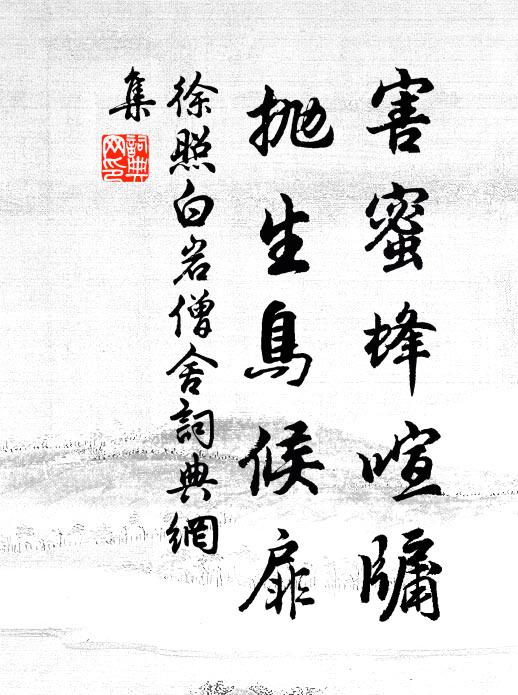 害蜜蜂喧牖
抛生鳥候扉
徐照白岩僧舍詞典網
集
詞典网印